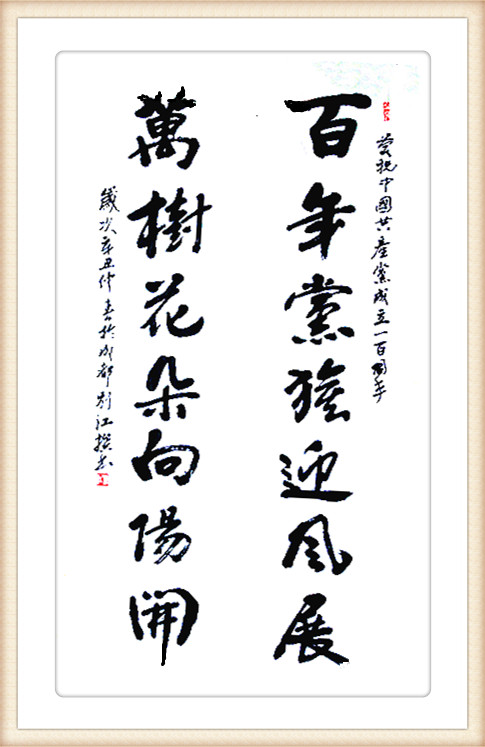 慶祝中國共產黨成立一百周年
百年黨旗迎風展
萬樹花朵向陽開
歲次辛丑仲春於成都別江撰書